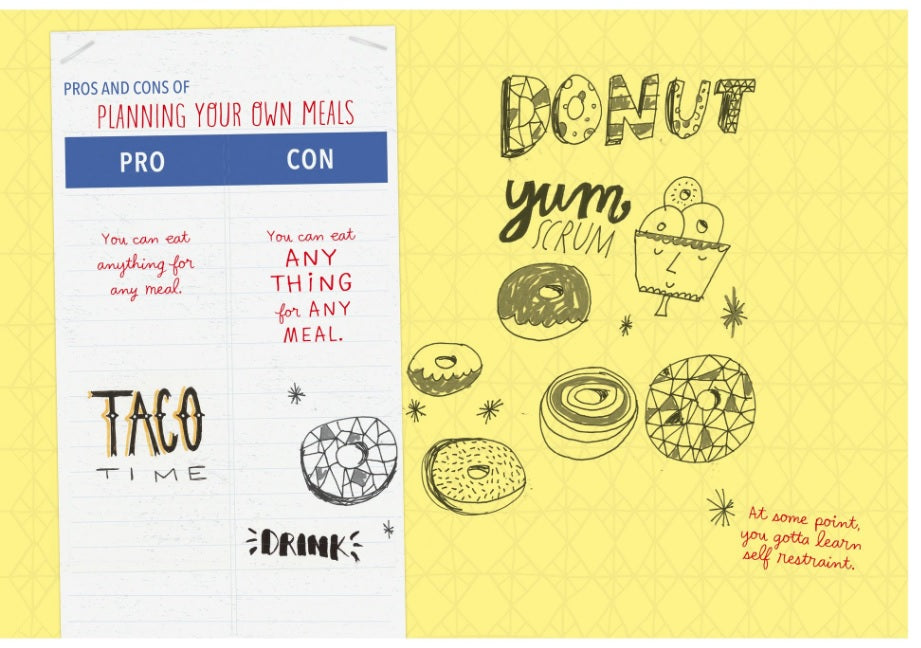 PROS AND CONS OF
PLANNING YOUR OWN MEALS
PRO
CON
You can eat
anything for
any meal.
You can eat
ANY
THING
for ANY
MEAL.
TACO
TIME
DRINK
DONUT
yum
SCRUM
At some point,
you gotta learn
self restraint.